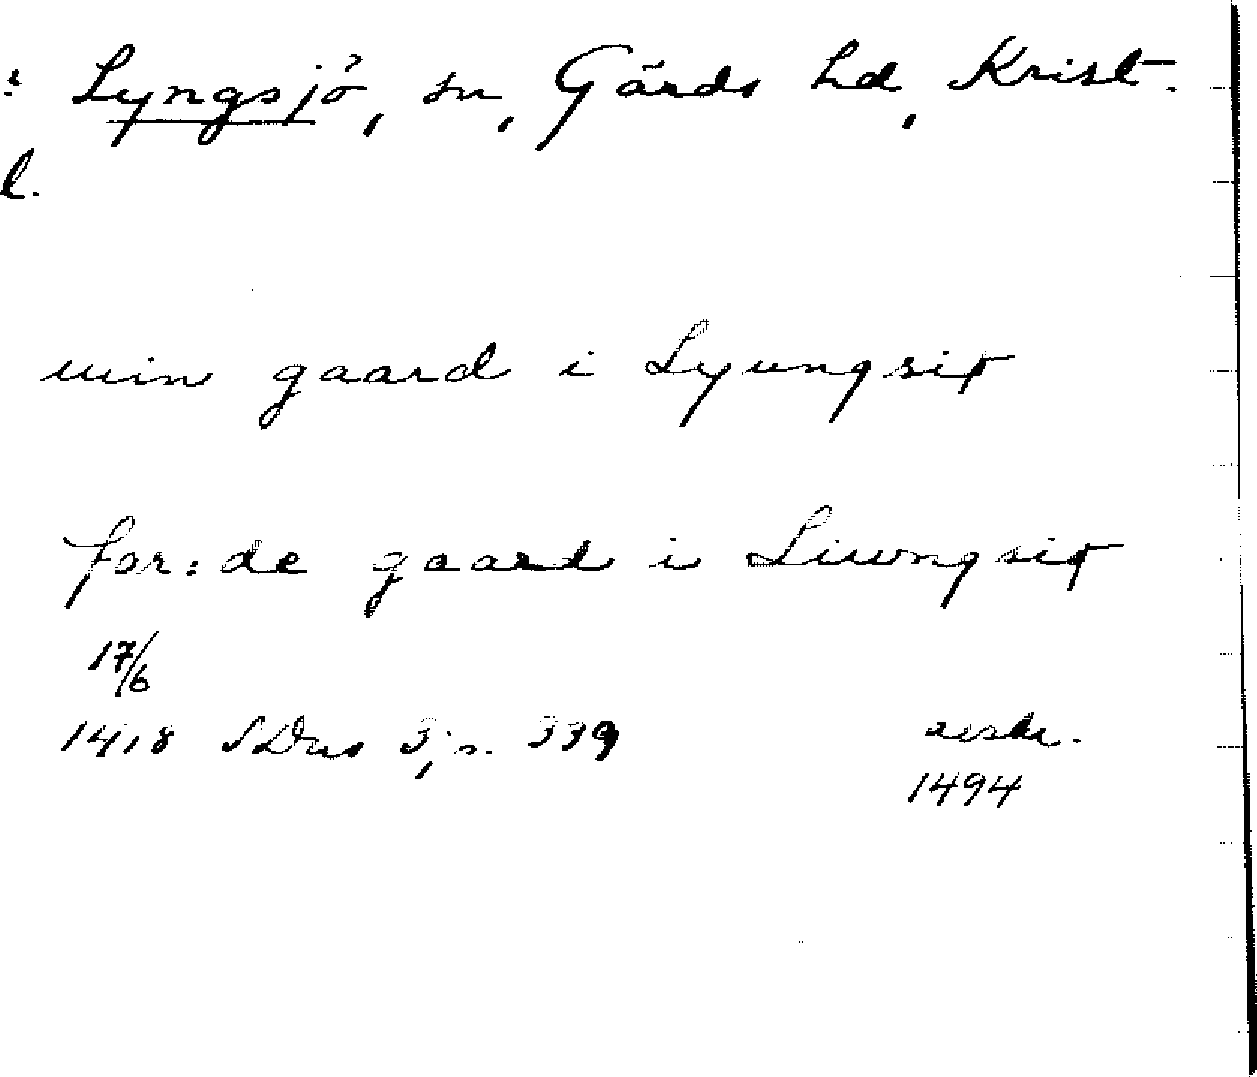 : Lyngsjö, sn, Gärds hd, Krist.
l.
min gaard i Lyungsiø
for:de gaard i Liwngsiø
17/6
1418 SDns 3, s. 339
avskr.
1494